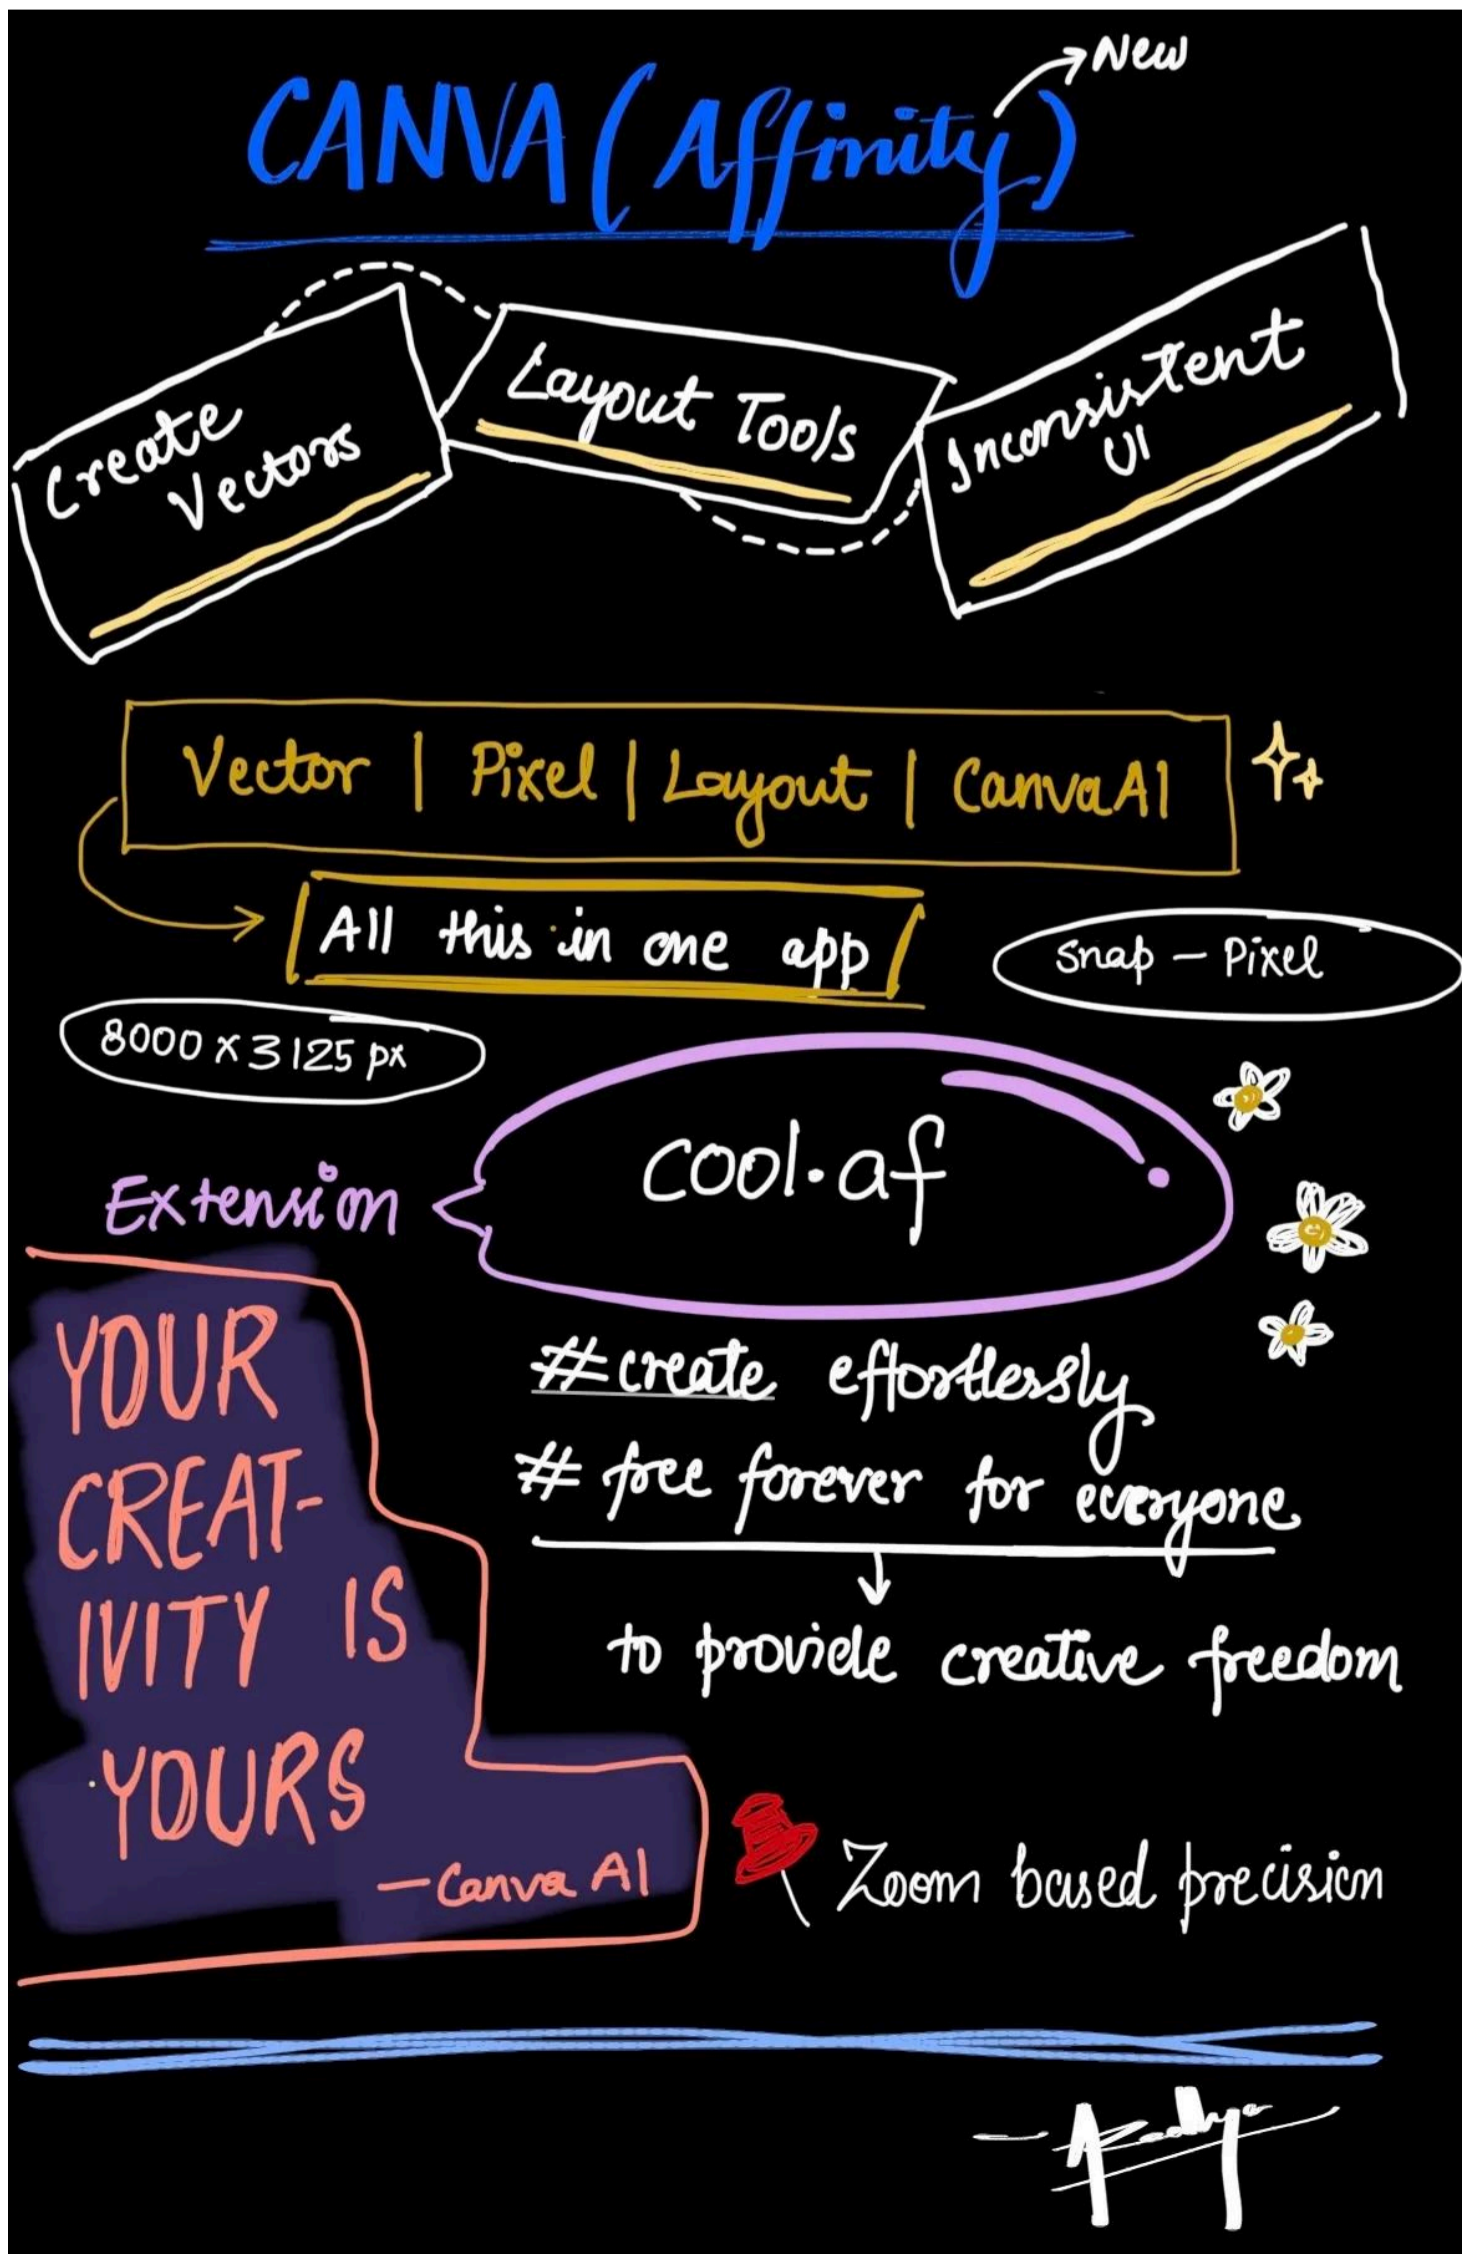 New
CANVA (Affinity)
Create
Vectors
Layout Tools
Inconsistent
UI
Vector | Pixel | Layout | CanvaAI
All this in one app
snap - Pixel
8000 x 3125 px
cool.af
Extension
YOUR
CREAT-
IVITY IS
YOURS
- Canva AI
#create effortlessly
# free forever for everyone
to provide creative freedom
Zoom based precision